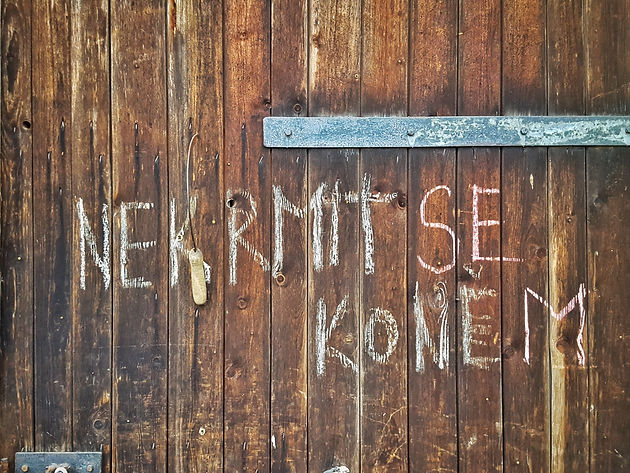 NEKRMIT SE
KONĚM